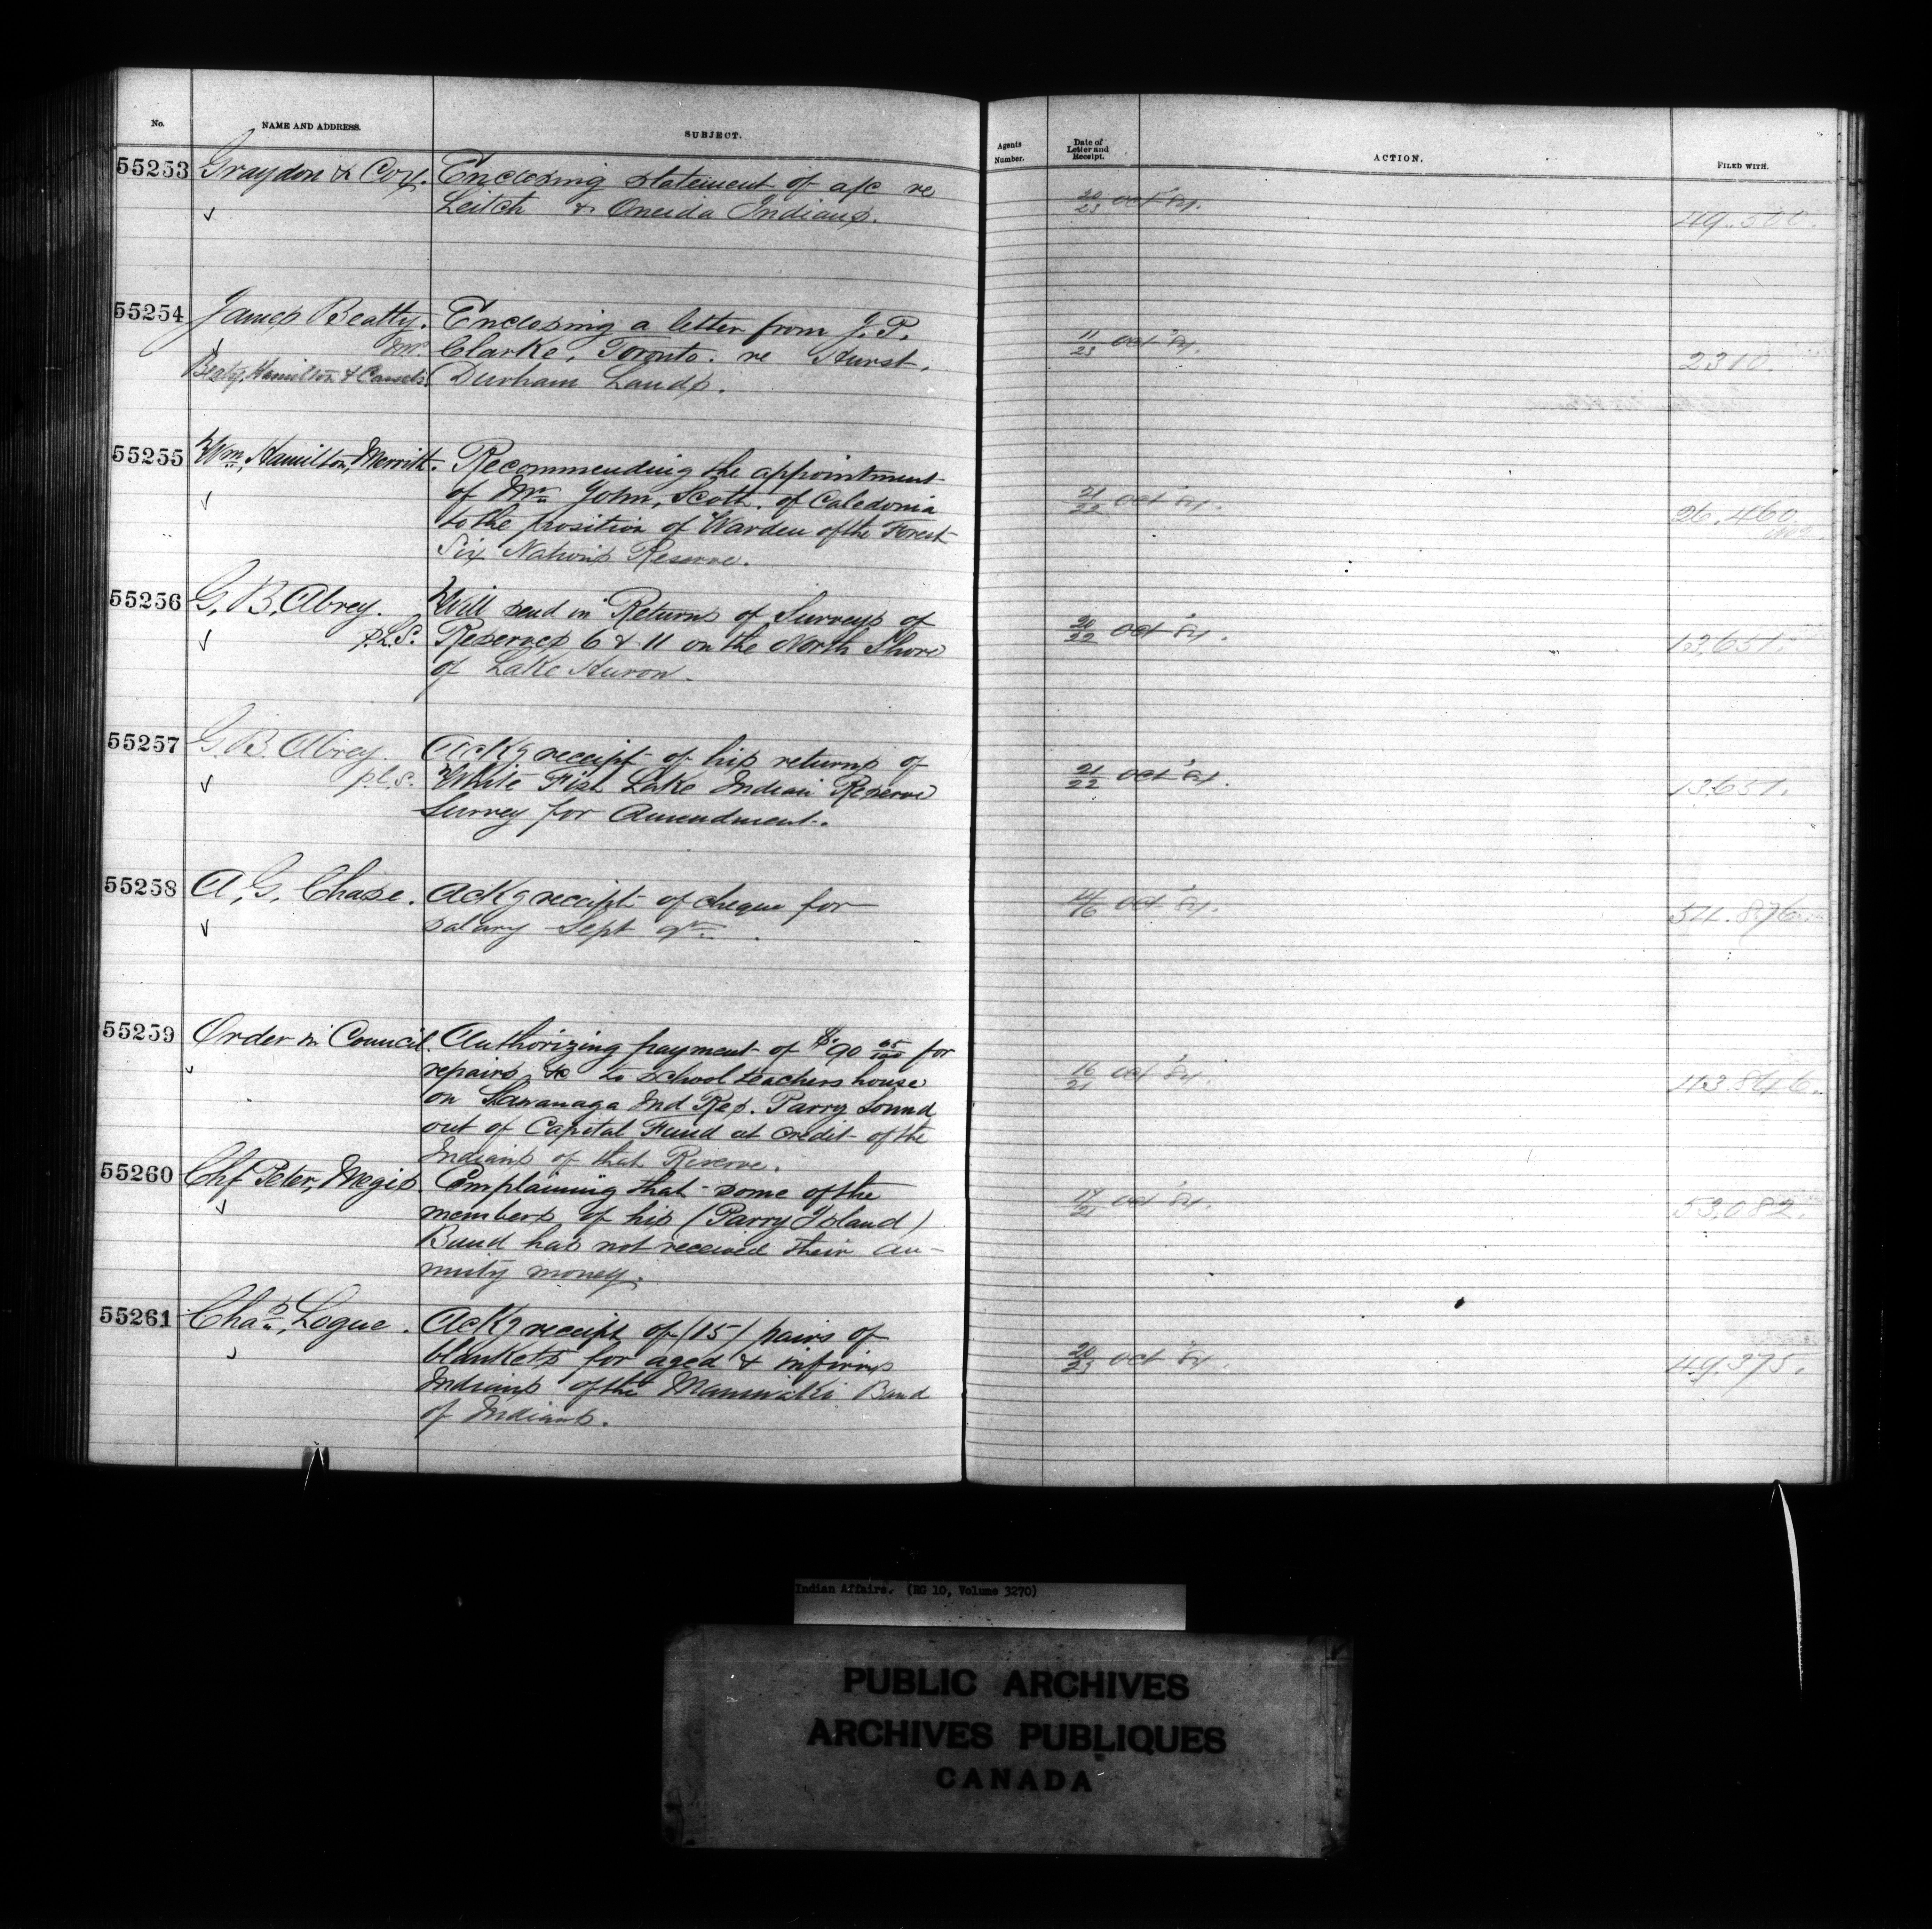 No.
NAME AND ADDRESS.
SUBJECT.
Agents Number.
Date of Letter and Receipt.
ACTION.
FILED WITH.
55253
Graydon & Cox.
Enclosing statement of a/c re
Leitch & Oneida Indians.
20/23 Oct '84.
49.500.
55254
James Beatty.
Beaty, Hamilton & Cassels
Enclosing a letter from J. P.
Clarke, Toronto. re Hurst.
Durham Lands.
11/23 Oct '84.
2310.
55255
Wm. Hamilton Merritt.
Recommending the appointment
of Mr. John, Scott. of Caledonia
to the position of Warden of the Forest
Six Nations Reserve.
21/22 Oct '84.
26.460
55256
G. B. Abrey.
P.L.S.
Will send in Returns of Surveys of
Reserves 6 & 11 on the North Shore
of Lake Huron.
20/22 Oct '84.
13.651.
55257
G. B. Abrey.
P.L.S.
Ackg receipt of his returns of
White Fish Lake Indian Reserve
Survey for Amendment.
21/22 Oct '84.
13.651.
55258
A. G. Chase.
Ackg receipt of cheque for
salary Sept qr.
14/16 Oct '84.
54.876.
55259
Order in Council.
Authorizing payment of $90 05/100 for
repairs &c to school teachers house
on Shawanaga Ind Res. Parry Sound
out of Capital Fund at credit of the
Indians of that Reserve.
16/21 Oct '84.
43.846.
55260
Chf Peter, Megis
Complaining that some of the
members of his (Parry Island)
Band has not received their an-
nuity money.
17/21 Oct '84.
53.082.
55261
Chas. Logue.
Ackg receipt of (15) pairs of
blankets for aged & infirm
Indians of the Maniwaki Band
of Indians.
20/23 Oct '84.
49.375.
Indian Affairs. (RG 10, Volume 3270)
PUBLIC ARCHIVES
ARCHIVES PUBLIQUES
CANADA